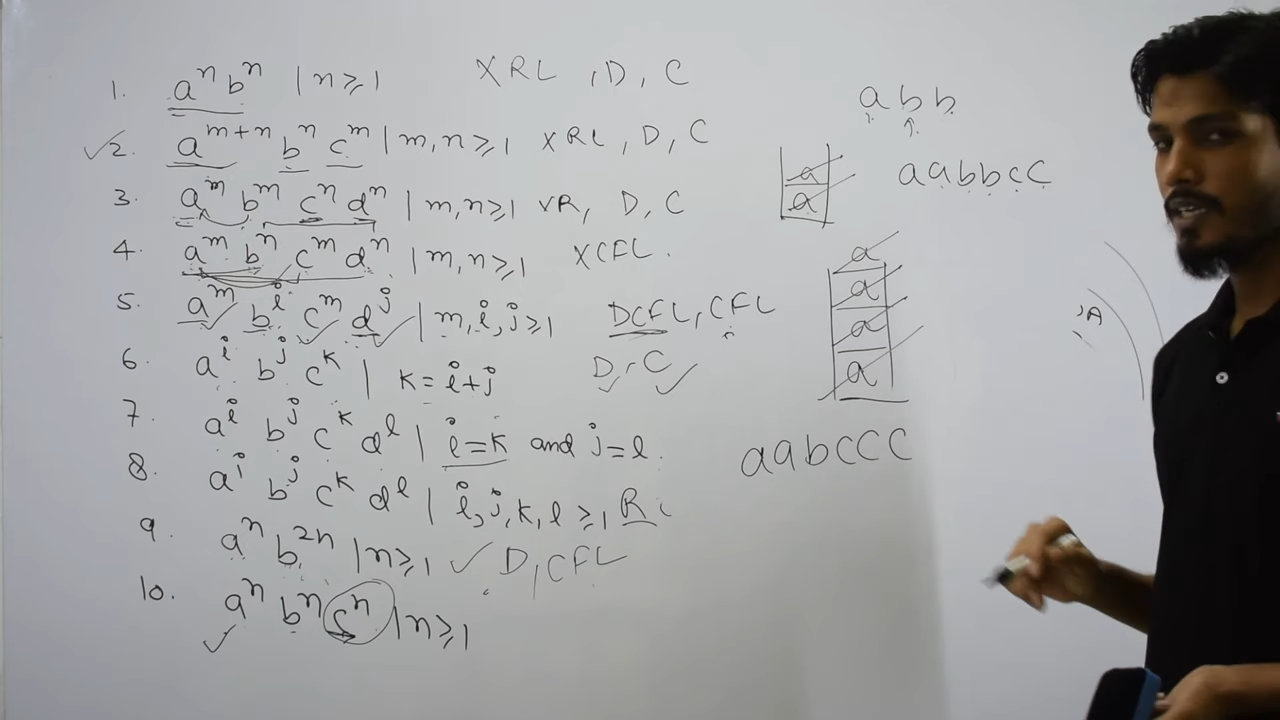 1. aⁿ bⁿ | n ≥ 1 X RL , D , C
✓2. aᵐ⁺ⁿ bⁿ cᵐ | m, n ≥ 1 X RL , D , C
3. aᵐ bᵐ cⁿ dⁿ | m, n ≥ 1 XR, D, C
4. aᵐ bⁿ cᵐ dⁿ | m, n ≥ 1 XCFL.
5. aᵐ bⁱ cᵐ dʲ | m, i, j ≥ 1 DCFL, CFL
6. aⁱ bʲ cᵏ | k = i + j D, C
7. aⁱ bʲ cᵏ dˡ | i = k and j = l.
8. aⁱ bʲ cᵏ dˡ | i, j, k, l ≥ 1 R
9. aⁿ b²ⁿ | n ≥ 1 ✓ D, CFL
10. aⁿ bⁿ cⁿ | n ≥ 1
a b b
a
a
a a b b c c
a
a
a
a
A
a a b c c c